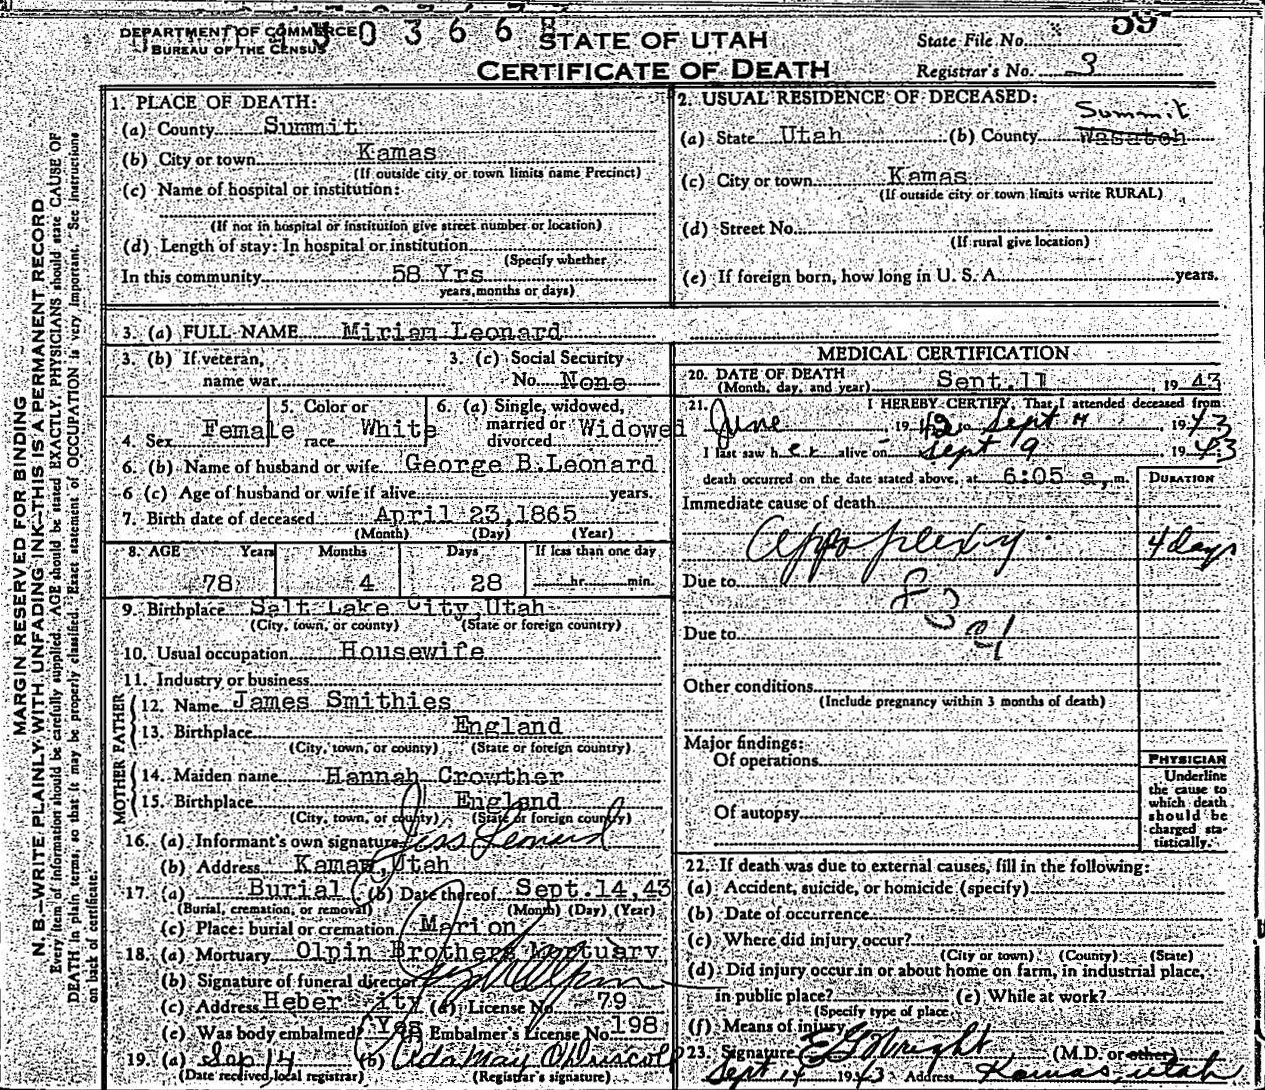 DEPARTMENT OF COMMERCE
BUREAU OF THE CENSUS
0 3 6 6
STATE OF UTAH
CERTIFICATE OF DEATH
State File No. 59
Registrar's No. 3
MARGIN RESERVED FOR BINDING
N. B.—WRITE PLAINLY, WITH UNFADING INK—THIS IS A PERMANENT RECORD
Every item of information should be carefully supplied. AGE should be stated EXACTLY. PHYSICIANS should state CAUSE OF
DEATH in plain terms, so that it may be properly classified. Exact statement of OCCUPATION is very important. See instructions
on back of certificate.
1. PLACE OF DEATH:
(a) County Summit
(b) City or town Kamas
(If outside city or town limits name Precinct)
(c) Name of hospital or institution:
(If not in hospital or institution give street number or location)
(d) Length of stay: In hospital or institution
(Specify whether
In this community 58 Yrs
years, months or days)
2. USUAL RESIDENCE OF DECEASED:
Summit
(a) State Utah (b) County Wasatch
(c) City or town Kamas
(If outside city or town limits write RURAL)
(d) Street No.
(If rural give location)
(e) If foreign born, how long in U. S. A. years.
3. (a) FULL NAME Miriam Leonard
3. (b) If veteran, name war
3. (c) Social Security No. None
4. Sex Female
5. Color or race White
6. (a) Single, widowed, married or divorced Widowed
6. (b) Name of husband or wife George B.Leonard
6 (c) Age of husband or wife if alive years.
7. Birth date of deceased April 23,1865
(Month) (Day) (Year)
8. AGE Years Months Days If less than one day
78 4 28 hr. min.
9. Birthplace Salt Lake City,Utah
(City, town, or county) (State or foreign country)
10. Usual occupation Housewife
11. Industry or business
FATHER
12. Name James Smithies
13. Birthplace England
(City, town, or county) (State or foreign country)
MOTHER
14. Maiden name Hannah Crowther
15. Birthplace England
(City, town, or county) (State or foreign country)
16. (a) Informant's own signature Leonard
(b) Address Kamas,Utah
17. (a) Burial (b) Date thereof Sept.14,43
(Burial, cremation, or removal) (Month) (Day) (Year)
(c) Place: burial or cremation Marion
18. (a) Mortuary Olpin Brothers Mortuary
(b) Signature of funeral director Olpin
(c) Address Heber City (d) License No. 79
(e) Was body embalmed? Yes (f) Embalmer's License No. 198
19. (a) Sep 14 (b) Ada May O'Driscoll
(Date received local registrar) (Registrar's signature)
MEDICAL CERTIFICATION
20. DATE OF DEATH
(Month, day, and year) Sept.11, 1943
21. I HEREBY CERTIFY, That I attended deceased from
June, 1942 to Sept 1943
I last saw her alive on Sept 9 1943
death occurred on the date stated above, at 6:05 a, m.
DURATION
Immediate cause of death
Appoplexy 4 days
Due to 83
Due to a1
Other conditions
(Include pregnancy within 3 months of death)
Major findings:
Of operations
Of autopsy
PHYSICIAN
Underline
the cause to
which death
should be
charged sta-
tistically.
22. If death was due to external causes, fill in the following:
(a) Accident, suicide, or homicide (specify)
(b) Date of occurrence
(c) Where did injury occur?
(City or town) (County) (State)
(d) Did injury occur in or about home on farm, in industrial place,
in public place? (e) While at work?
(Specify type of place
(f) Means of injury
23. Signature E G Wright (M.D. or other)
Sept 14 1943 Address Kamas, Utah